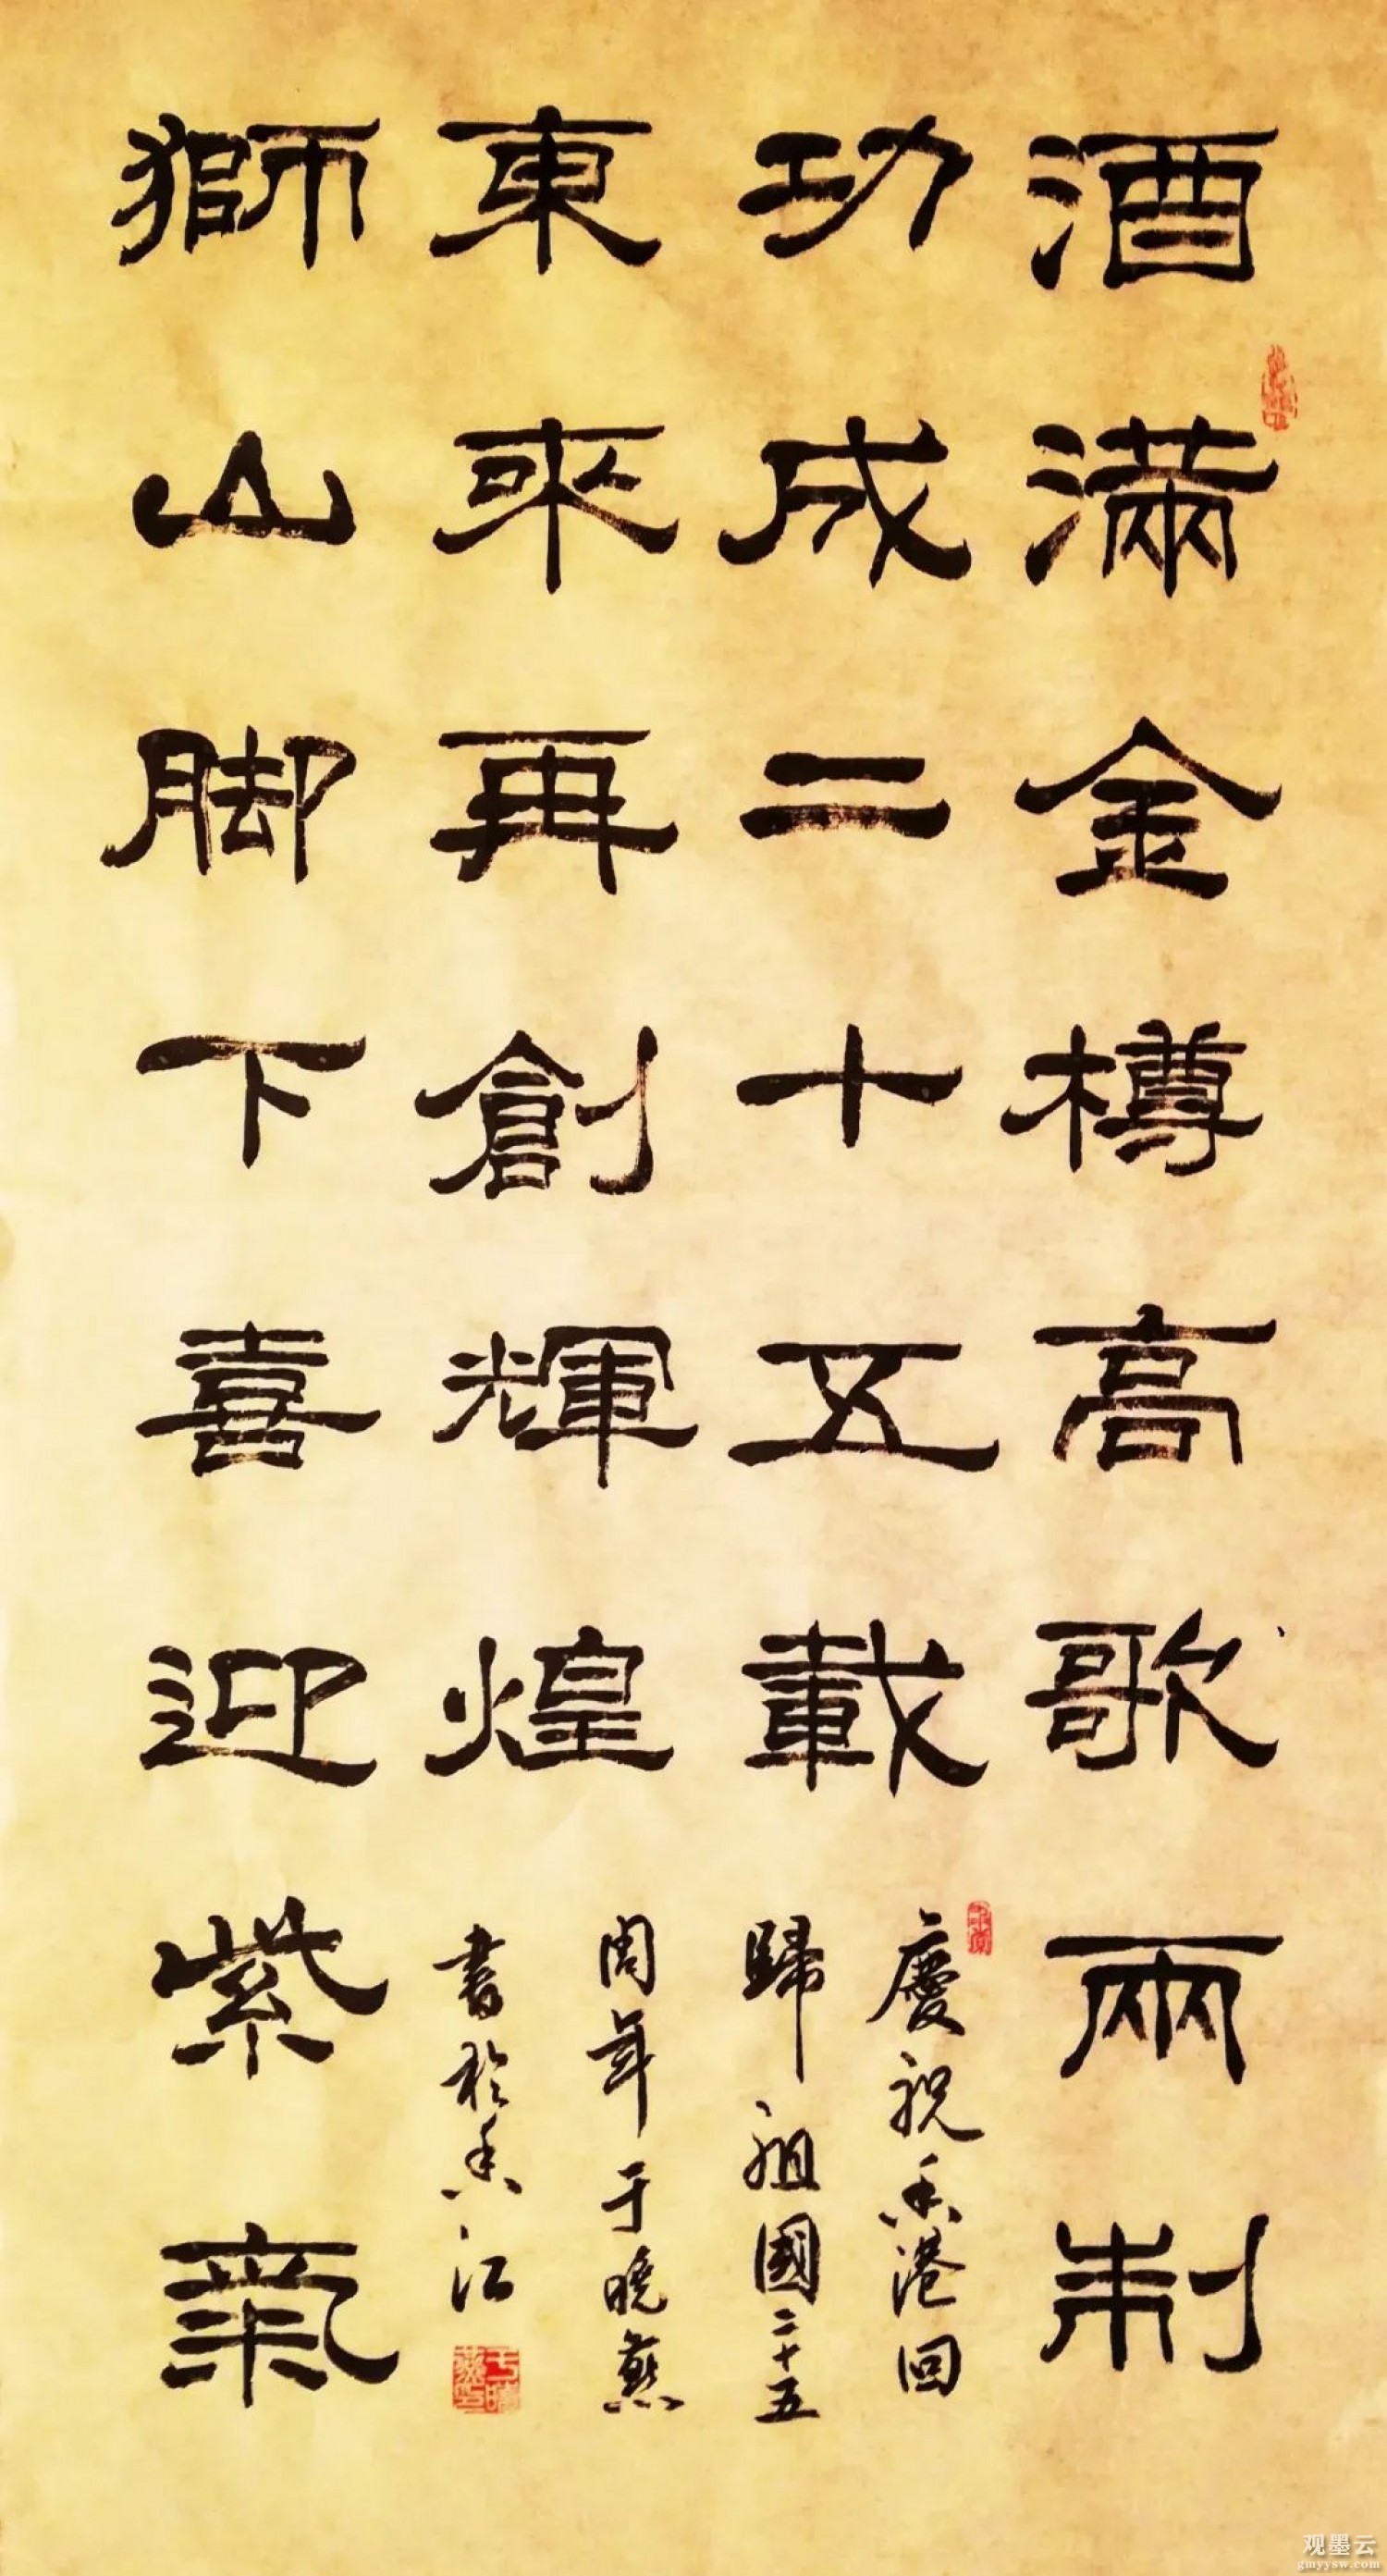 酒滿金樽高歌兩制
功成二十五載
獅山脚下喜迎紫氣
東來再創輝煌
慶祝香港回
歸祖國二十五
周年于曉燕
書於香江
观墨云
gmyysw.com